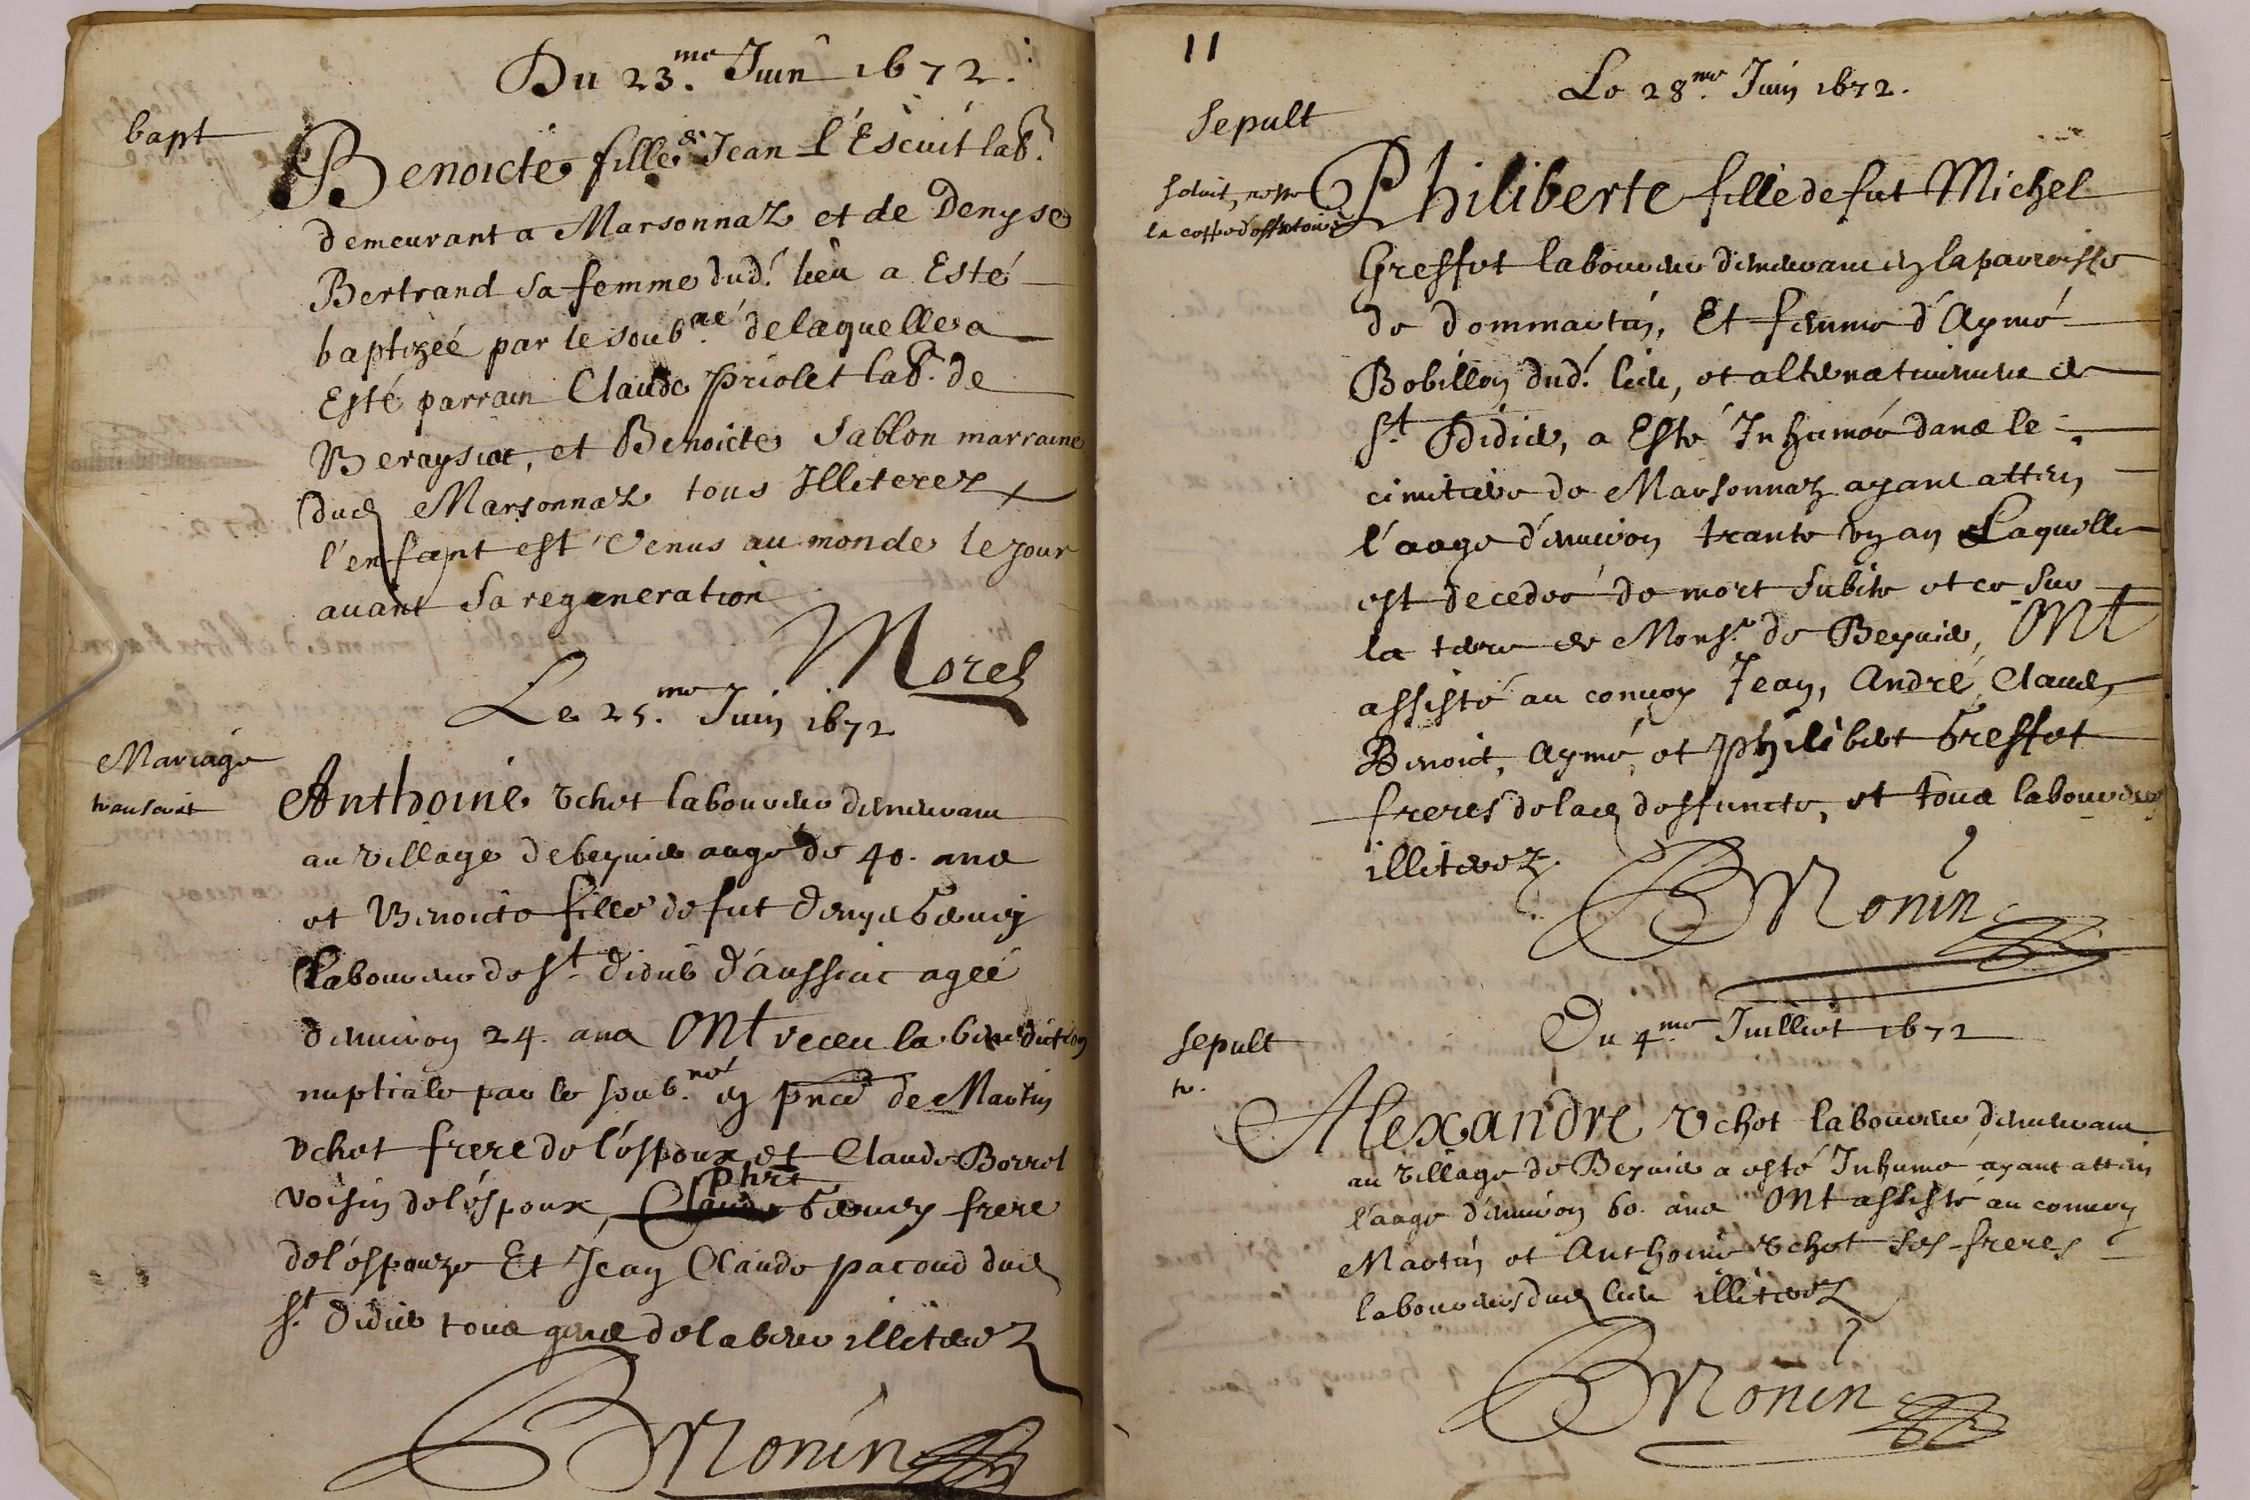 Du 23.me Juin 1672.
bapt
Benoicte fille de Jean l'Escuit lab.
demeurant a Marsonnaz et de Denyse
Bertrand sa femme dud. lieu a Esté
baptizéé par le soub.né delaquelle a
Esté parrain Claude priolet lab. de
Beraysiat, et Benoicte Sablon marraine
dud Marsonnaz tous Illiterez
l'enfant est Venus au monde le jour
auant sa regeneration
Morel
Le 25.me Juin 1672
Mariage
Anthoine Vchet laboureur demeurant
au village de beyuie aagé de 40. ans
et Benoicte fille de fut denys
laboureur de St didié d'aussiat agéé
d'enuiron 24. ans ONt receu la benediction
nuptiale par le soub.né en pnce de Martin
Vchet frere de l'éspoux et Claude Borrel
voisin de l'éspoux, phrt frere
de l'éspouze Et Jean Claude pacoud dud
St didié tous gens de labeur illiterez
BMonin
11
Le 28.me Juin 1672.
Sepult
Philiberte fille de fut Michel
Greffet laboureur demeurant en la parroisse
de dommartin, Et femme d'Aymé
Bobillon dud. lieu, et alternatiuement de
St Didié, a Esté Inhuméé dans le
cimitiere de Marsonnaz ayant attein
l'aage d'enuiron trante vn an Laquelle
est decedéé de mort subite et ce sur
la terre de Monsr. de Beyuie, ONt
assisté au conuoy Jean, André, Claude,
Benoict, Aymé, et philibert Greffet
freres de lad deffuncte, et tous laboureurs
illiterez.
BMonin
Du 4.me Juilliet 1672
Sepult
Alexandre Vchet laboureur demeurant
au village de Beyuie a esté Inhumé ayant attein
l'aage d'enuiron 60. ans ONt assisté au conuoy
Martin et Anthoine Vchet ses freres
laboureurs dud lieu illiterez
BMonin